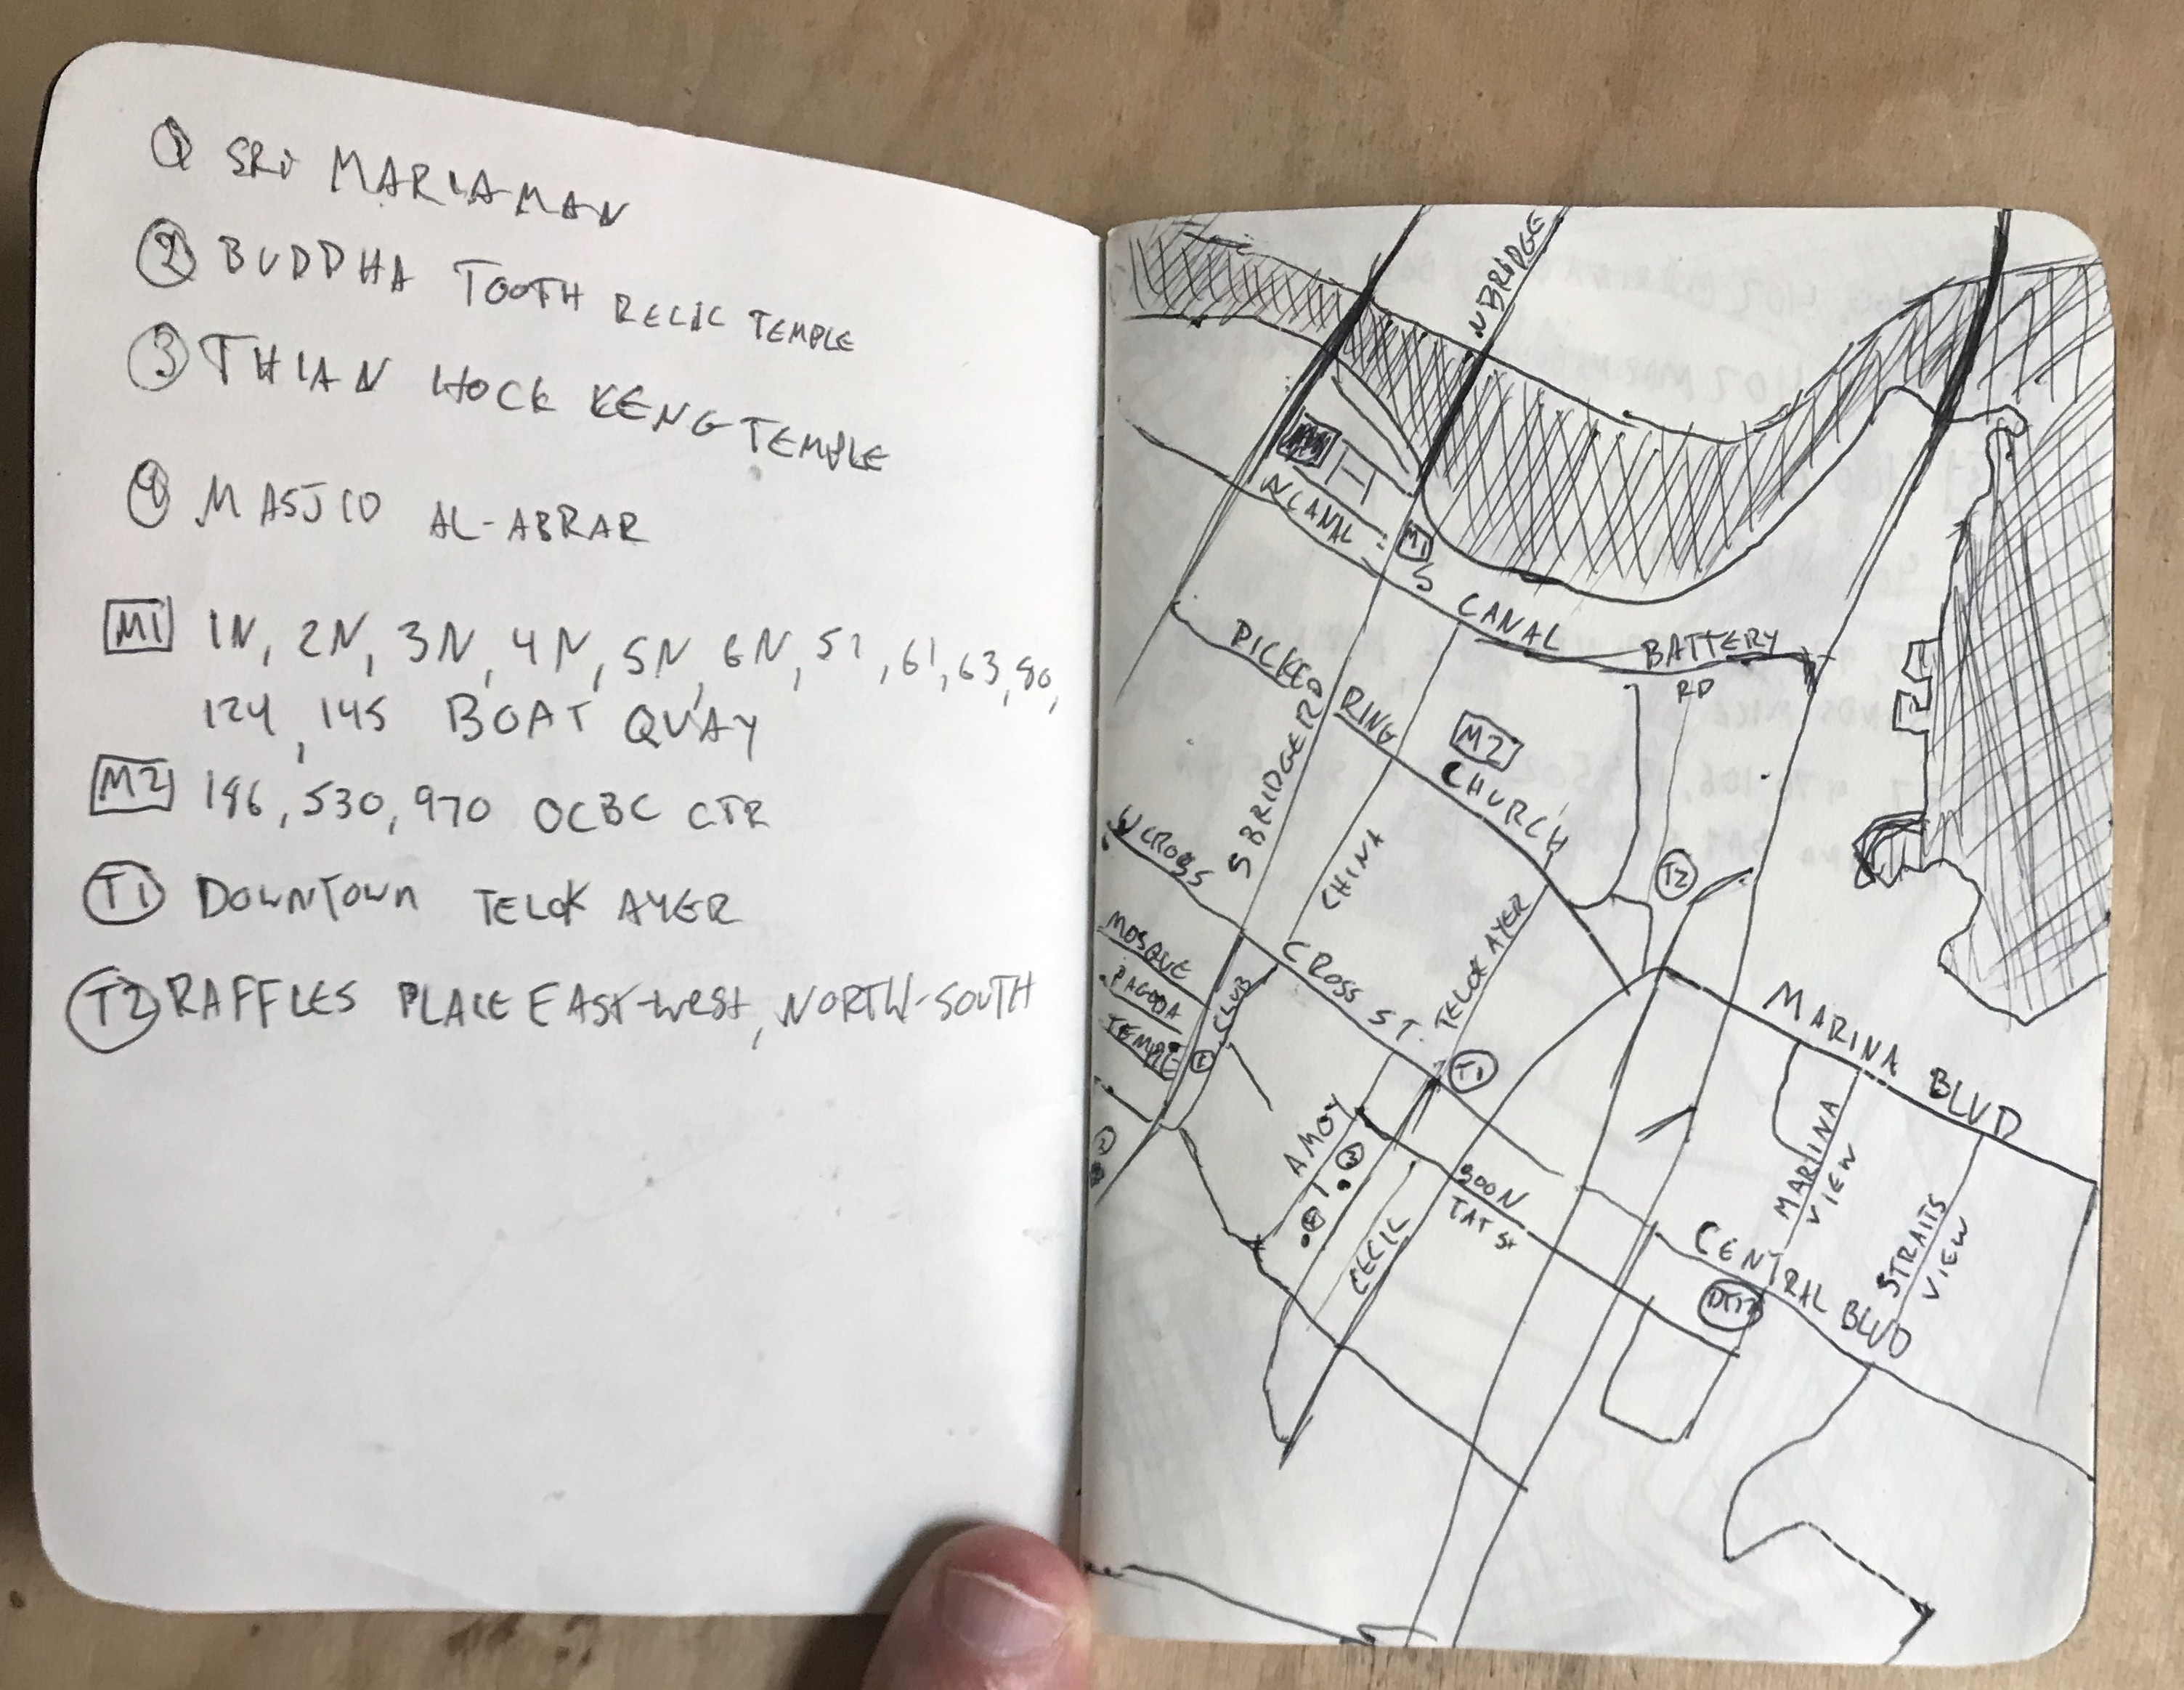 ① SRi MARIAMAN
② BUDDHA TOOTH RELIC TEMPLE
③ THIAN HOCK KENG TEMPLE
④ MASJID AL-ABRAR
M1 1N, 2N, 3N, 4N, 5N, 6N, 51, 61, 63, 80,
124, 145 BOAT QUAY
M2 186, 530, 970 OCBC CTR
T1 DOWNTOWN TELOK AYER
T2 RAFFLES PLACE EAST-WEST, NORTH-SOUTH
N BRIDGE
N CANAL
M1
S CANAL
BATTERY
RD
PICKE RING
M2
CHURCH
S BRIDGE R
CHINA
W CROSS
T2
TELOK AYER
MOSQUE
PAGODA
TEMPLE
CLUB
①
CROSS ST.
T1
MARINA BLVD
AMOY
②
③
④
CECIL
BOON
TAT St
MARINA
VIEW
STRAITS
VIEW
CENTRAL BLVD